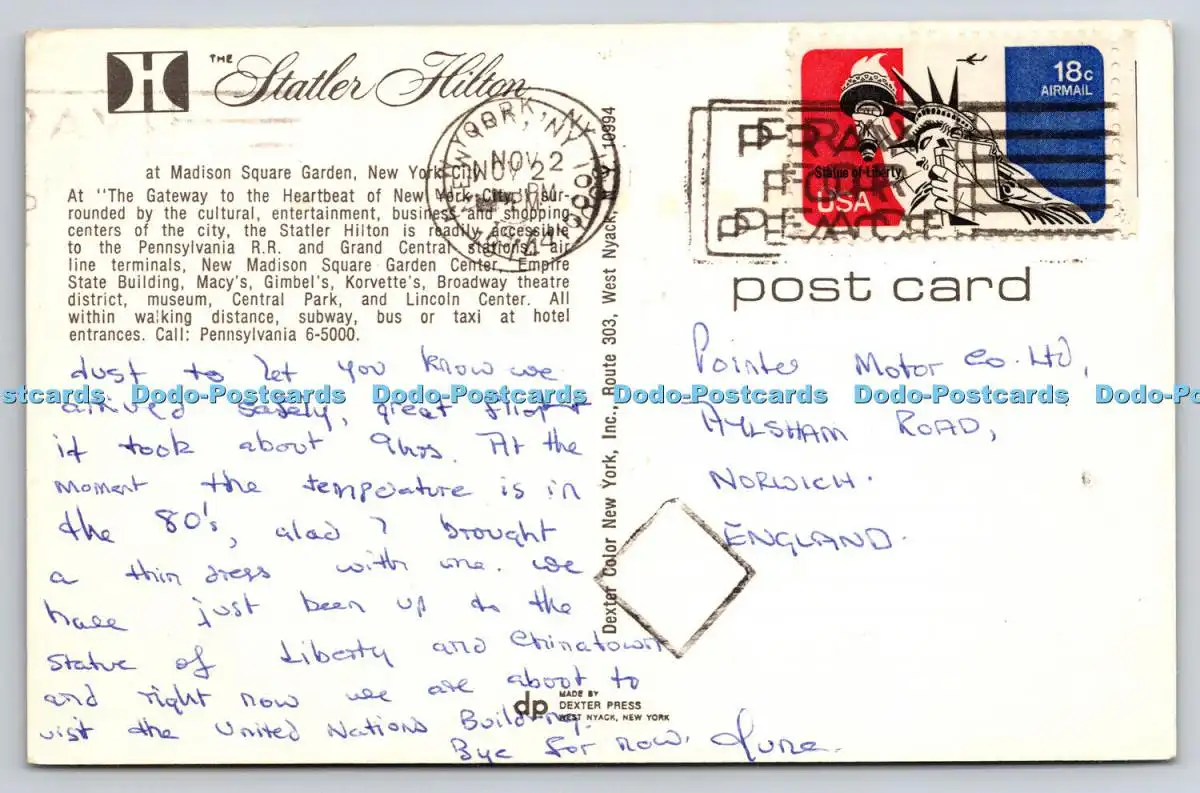 THE Statler Hilton
at Madison Square Garden, New York City
At "The Gateway to the Heartbeat of New York City," sur-
rounded by the cultural, entertainment, business and shopping
centers of the city, the Statler Hilton is readily accessible
to the Pennsylvania R.R. and Grand Central stations, air
line terminals, New Madison Square Garden Center, Empire
State Building, Macy's, Gimbel's, Korvette's, Broadway theatre
district, museum, Central Park, and Lincoln Center. All
within walking distance, subway, bus or taxi at hotel
entrances. Call: Pennsylvania 6-5000.
Just to let you know we
arrived safely, great flight
it took about 9hrs. At the
moment the temperature is in
the 80's, glad I brought
a thin dress with me. We
have just been up to the
Statue of Liberty and Chinatown
and right now we are about to
visit the United Nations Building.
Bye for now, June.
Dexter Color New York, Inc., Route 303, West Nyack, N.Y. 10994
dp MADE BY
DEXTER PRESS
WEST NYACK, NEW YORK
NEW YORK, NY
NOV 2
PM
18c
AIRMAIL
Statue of Liberty
USA
PRAY
FOR
PEACE
post card
Pointer Motor Co. Ltd,
AYLSHAM ROAD,
NORWICH.
ENGLAND.
Postcards Dodo-Postcards Dodo-Postcards Dodo-Postcards Dodo-Postcards Dodo-Pos